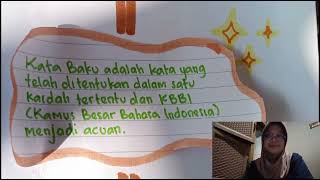 Kata Baku adalah kata yang
telah ditentukan dalam satu
kaidah tertentu dan KBBI
(Kamus Besar Bahasa Indonesia)
menjadi acuan.